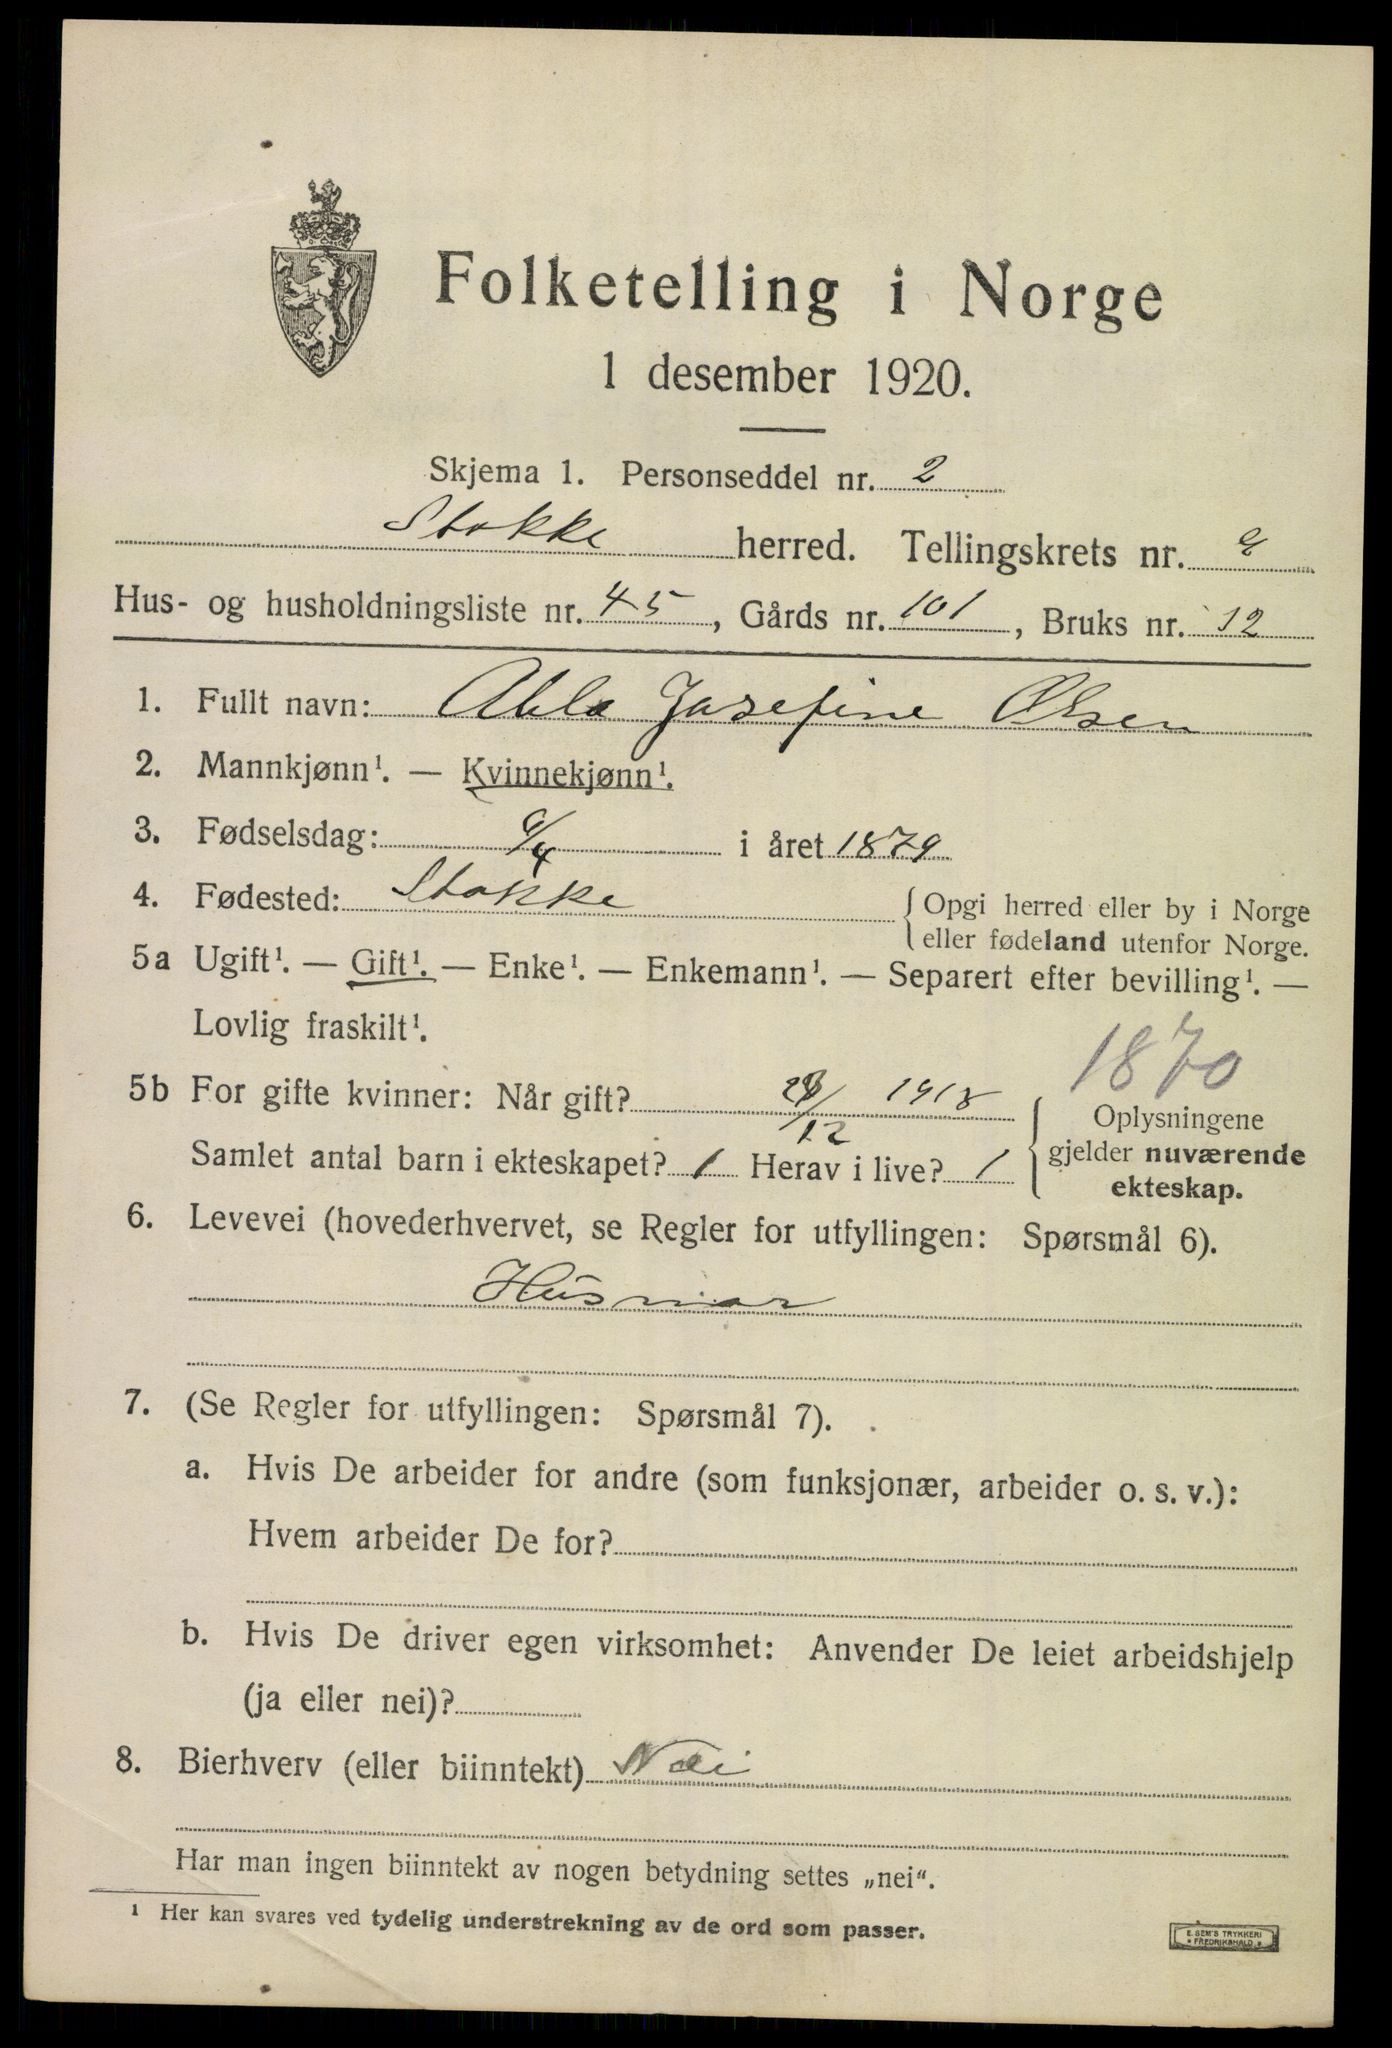 Folketelling i Norge
1 desember 1920.
Skjema 1. Personseddel nr. 2
Stokke herred. Tellingskrets nr.
Hus- og husholdningsliste nr. 45, Gårds nr. 101, Bruks nr. 12
1. Fullt navn: Josefine Olsen
2. Mannkjønn¹. — Kvinnekjønn¹.
3. Fødselsdag: i året 1879
4. Fødested: Stokke
Opgi herred eller by i Norge
eller fødeland utenfor Norge.
5a Ugift¹. — Gift¹. — Enke¹. — Enkemann¹. — Separert efter bevilling¹. —
Lovlig fraskilt¹.
1870
5b For gifte kvinner: Når gift? 1918
Samlet antal barn i ekteskapet? 1 Herav i live? 1
Oplysningene
gjelder nuværende
ekteskap.
6. Levevei (hovederhvervet, se Regler for utfyllingen: Spørsmål 6).
Husmor
7. (Se Regler for utfyllingen: Spørsmål 7).
a. Hvis De arbeider for andre (som funksjonær, arbeider o. s. v.):
Hvem arbeider De for?
b. Hvis De driver egen virksomhet: Anvender De leiet arbeidshjelp
(ja eller nei)?
8. Bierhverv (eller biinntekt) Nei
Har man ingen biinntekt av nogen betydning settes „nei“.
¹ Her kan svares ved tydelig understrekning av de ord som passer.
E. SEM'S TRYKKERI
* FREDRIKSHALD *